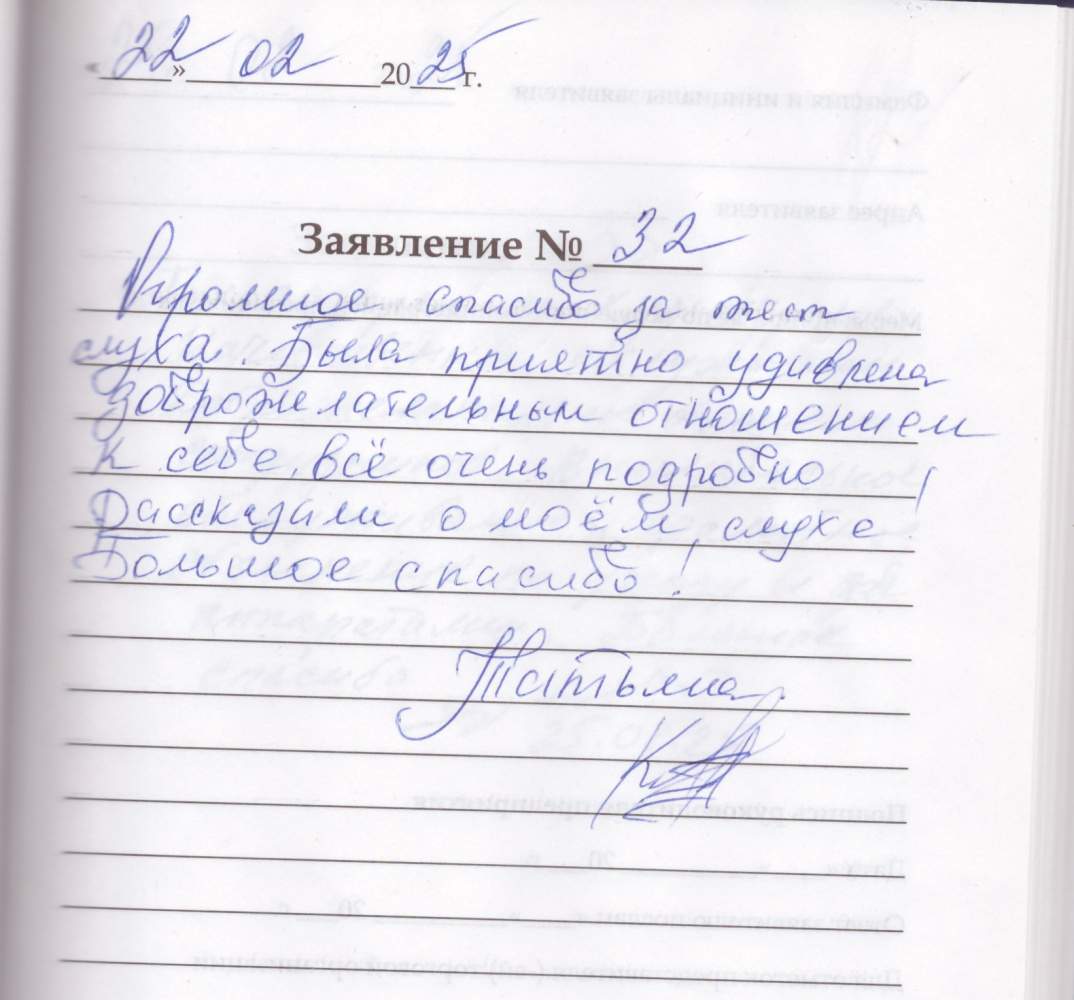 « 22 » 02 2025 г.
Заявление № 32
Огромное спасибо за тест
слуха. Была приятно удивлена
доброжелательным отношением
к себе, всё очень подробно
рассказали о моём слухе!
Большое спасибо!
Татьяна